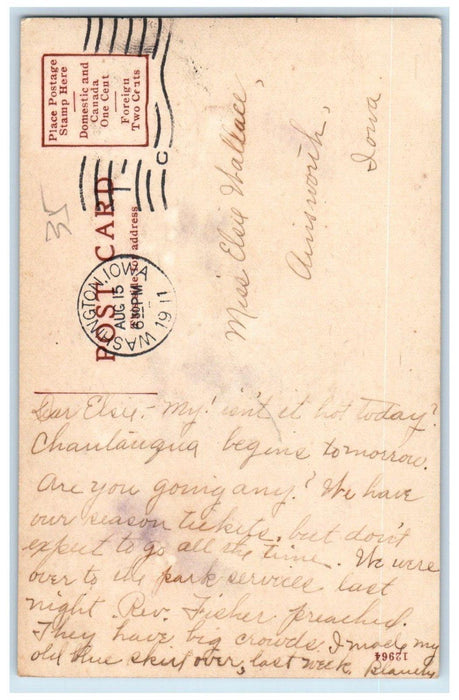 Place Postage
Stamp Here
Domestic and
Canada
One Cent
Foreign
Two Cents
POST CARD
This side for address
WASHINGTON, IOWA
AUG 15
6 30PM
1911
35
Miss Elsie Wallace,
Ainsworth,
Iowa.
Dear Elsie,- My! isn't it hot today?
Chautauqua begins tomorrow.
Are you going any? We have
our season tickets, but don't
expect to go all the time. We were
over to the park services last
night. Rev. Fisher preached.
They have big crowds. I made my
old blue skirt over, last week.
12964